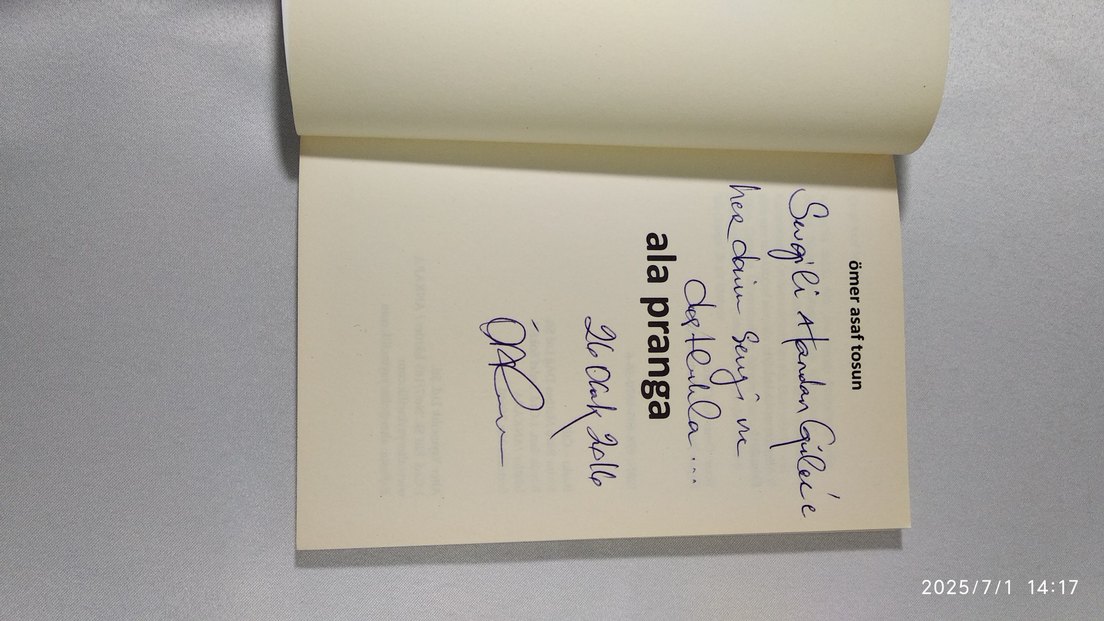 ömer asaf tosun
Sevgili Handan Güleç'e
her daim sevgi ve
dostlukla...
ala pranga
26 Ocak 2016
2025/7/1 14:17